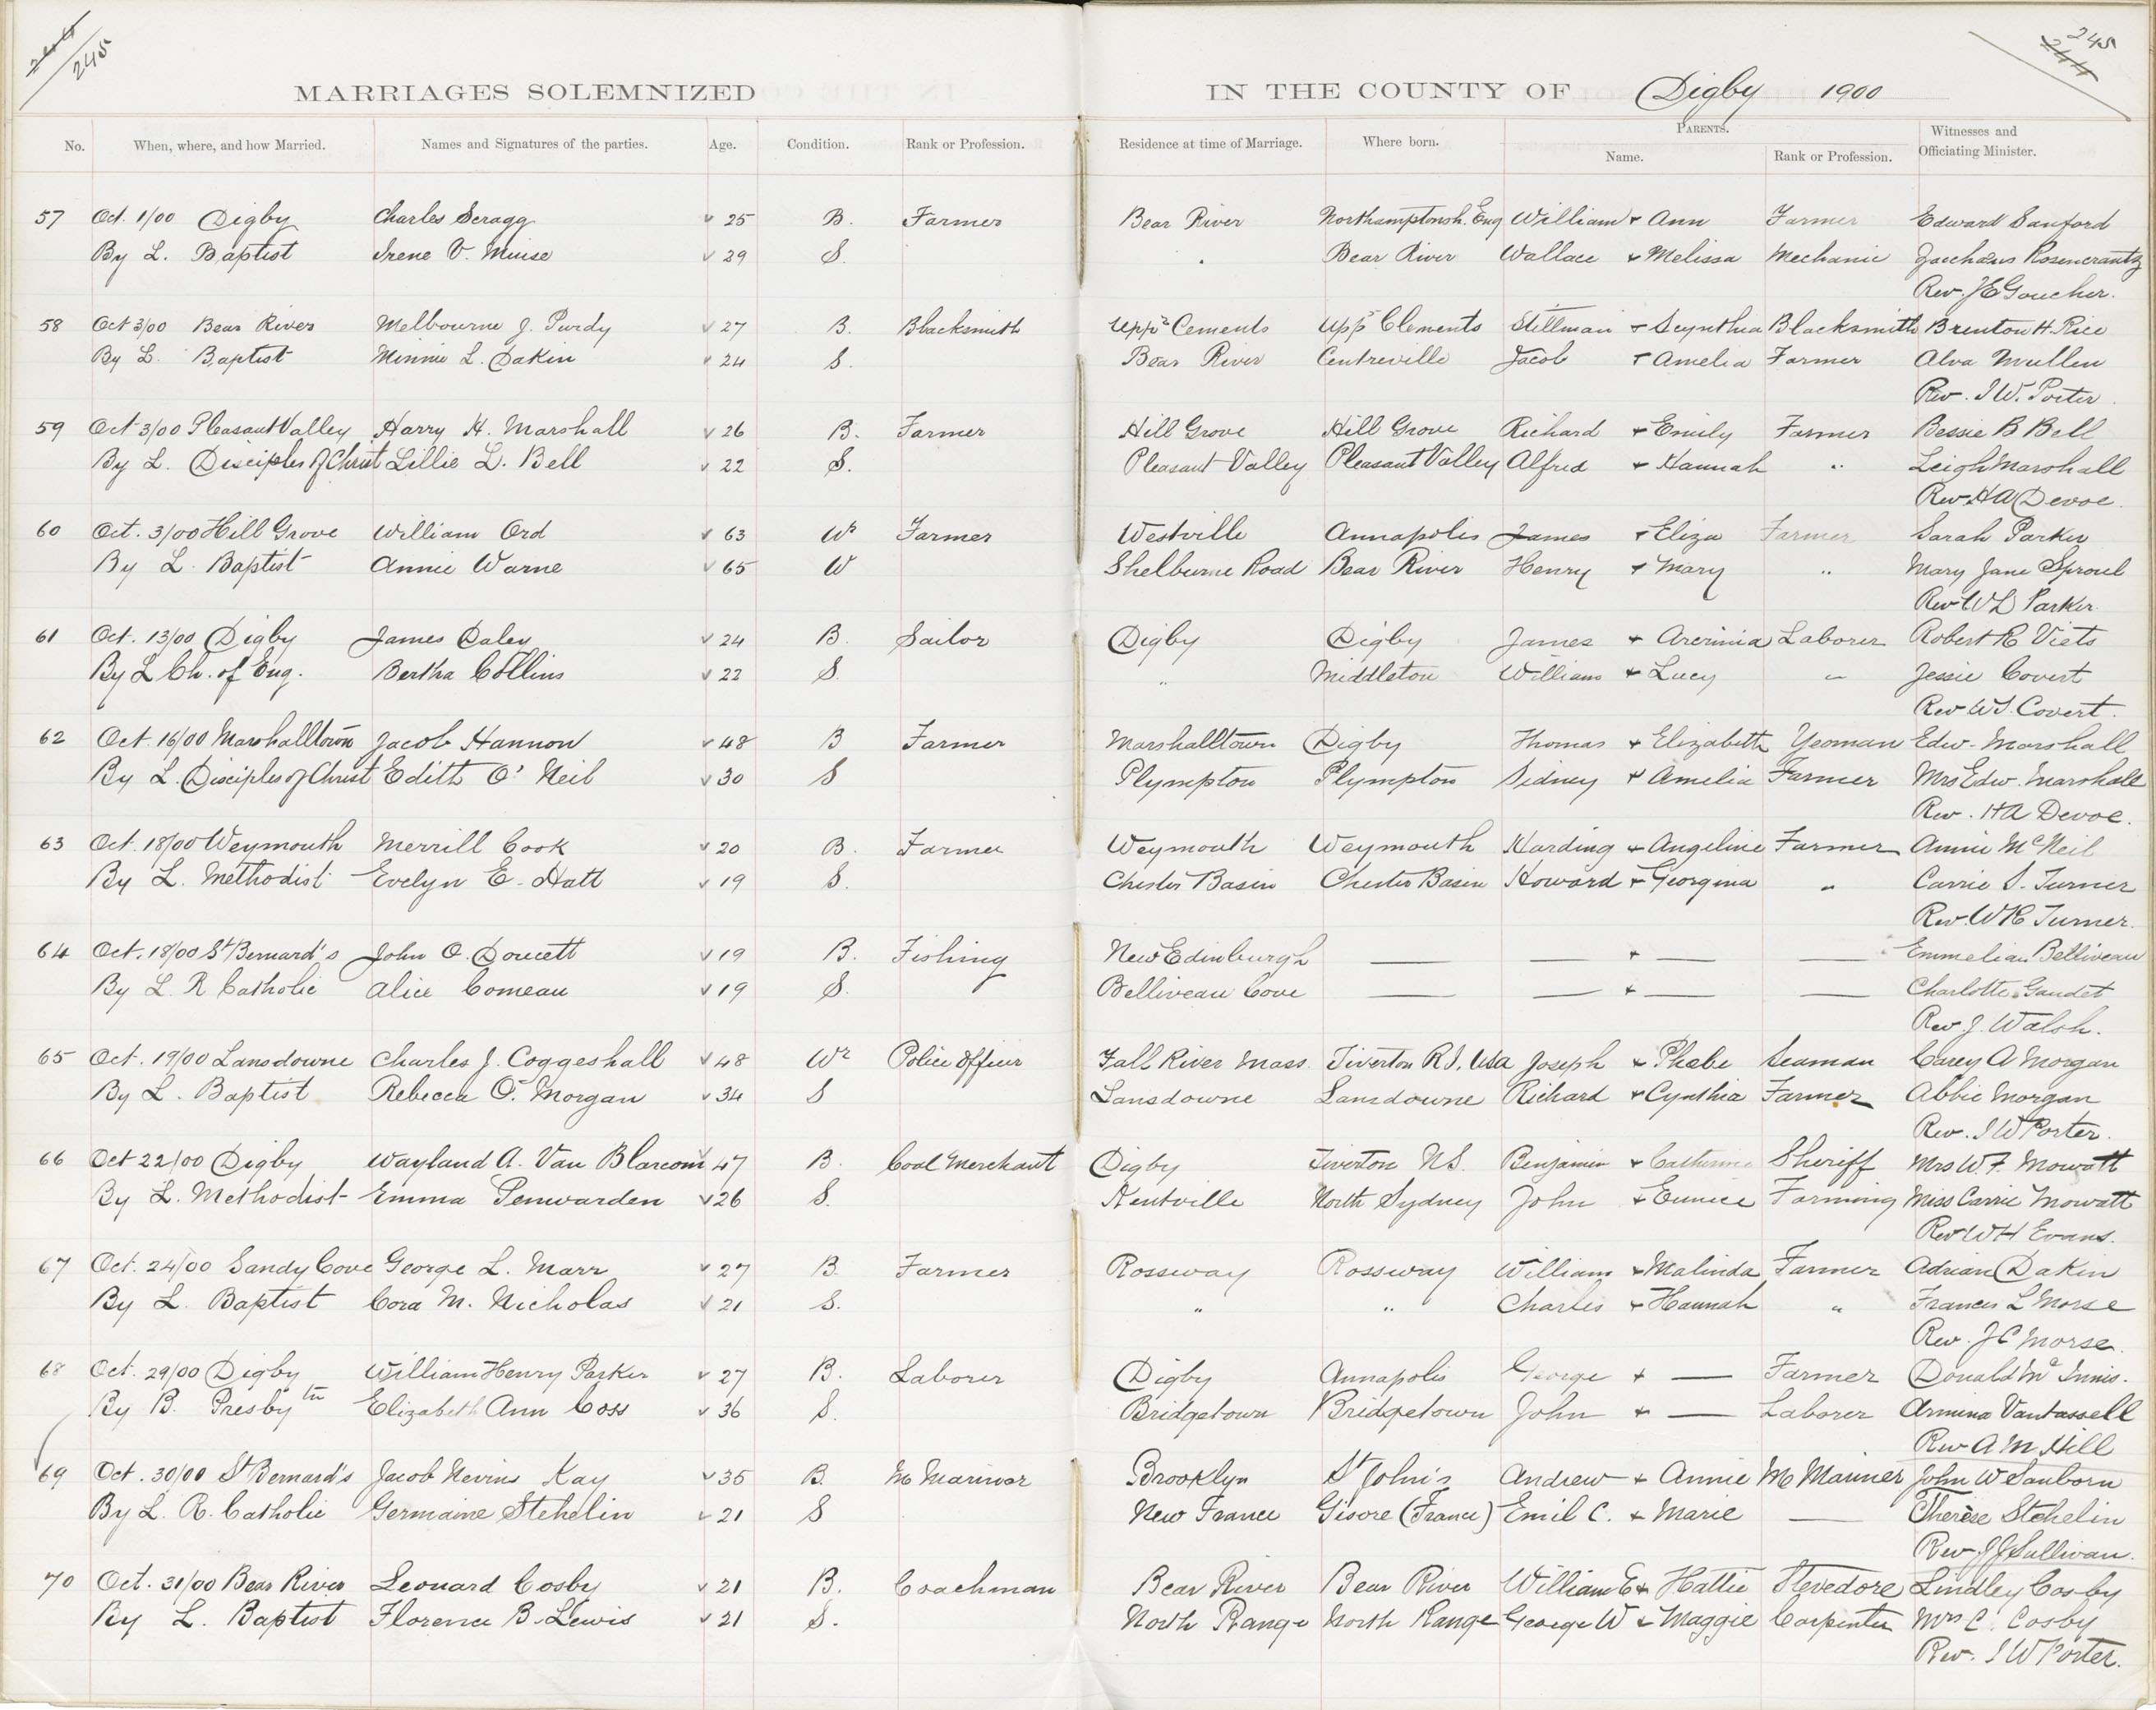 245
245
MARRIAGES SOLEMNIZED IN THE COUNTY OF Digby 1900
No. When, where, and how Married. Names and Signatures of the parties. Age. Condition. Rank or Profession. Residence at time of Marriage. Where born. PARENTS. Name. Rank or Profession. Witnesses and Officiating Minister.
57 Oct. 1/00 Digby Charles Scragg 25 B. Farmer Bear River Northamptonsh. Eng William + Ann Farmer Edward Sanford
By L. Baptist Irene V. Muise 29 S. " Bear River Wallace + Melissa Mechanic Zaccheus Rosencrantz
Rev. J E Goucher.
58 Oct 3/00 Bear River Melbourne J. Purdy 27 B. Blacksmith Uppr Cements Uppr Clements Stillman + Scynthia Blacksmith Brenton H. Rice
By L. Baptist Minnie L. Dakin 24 S. Bear River Centreville Jacob + Amelia Farmer Alva Mullen
Rev. I W. Porter.
59 Oct 3/00 Pleasant Valley Harry H. Marshall 26 B. Farmer Hill Grove Hill Grove Richard + Emily Farmer Bessie B Bell
By L. Disciples of Christ Lillie L. Bell 22 S. Pleasant Valley Pleasant Valley Alfred + Hannah " Leigh Marshall
Rev. H A Devoe.
60 Oct. 3/00 Hill Grove William Ord 63 Wr Farmer Westville Annapolis James + Eliza Farmer Sarah Parker
By L. Baptist Annie Warne 65 W Shelburne Road Bear River Henry + Mary " Mary Jane Sproul
Rev W L Parker.
61 Oct. 13/00 Digby James Daley 24 B. Sailor Digby Digby James + Laborer Robert R Viets
By L Ch. of Eng. Bertha Collins 22 S. " Middleton William + Lucy " Jessie Covert
Rev W S. Covert.
62 Oct. 16/00 Marshalltown Jacob Hannon 48 B Farmer Marshalltown Digby Thomas + Elizabeth Yeoman Edw. Marshall
By L. Disciples of Christ Edith O'Neil 30 S Plympton Plympton Sidney + Amelia Farmer Mrs Edw. Marshall
Rev. H A Devoe.
63 Oct. 18/00 Weymouth Merrill Cook 20 B. Farmer Weymouth Weymouth Harding + Angeline Farmer Annie McNeil
By L. Methodist Evelyn E. Hatt 19 S. Chester Basin Chester Basin Howard + Georgina " Carrie S. Turner
Rev. W R Turner.
64 Oct. 18/00 St Bernard's John O. Doucett 19 B. Fishing New Edinburgh — — + — — Emmelian Belliveau
By L. R Catholic Alice Comeau 19 S. Belliveau Cove — — + — — Charlotte Gaudet
Rev. J. Walsh.
65 Oct. 19/00 Lansdowne Charles J. Coggeshall 48 Wr Police Officer Fall River Mass. Tiverton R.I., USA Joseph + Phebe Seaman Carey A Morgan
By L. Baptist Rebecca O. Morgan 34 S Lansdowne Lansdowne Richard + Cynthia Farmer Abbie Morgan
Rev. I W Porter.
66 Oct 22/00 Digby Wayland A. Van Blarcom 47 B. Coal Merchant Digby Tiverton N.S. Benjamin + Catherine Sheriff Mrs W. F. Mowatt
By L. Methodist Emma Penwarden 26 S. Kentville North Sydney John + Eunice Farming Miss Carrie Mowatt
Rev W H Evans.
67 Oct. 24/00 Sandy Cove George L. Marr 27 B. Farmer Rossway Rossway William + Malinda Farmer Adrian Dakin
By L. Baptist Cora M. Nicholas 21 S. " " Charles + Hannah " Frances L Morse
Rev. J C Morse.
68 Oct. 29/00 Digby William Henry Parker 27 B. Laborer Digby Annapolis George + — Farmer Donald McInnis.
By B. Presbytn Elizabeth Ann Coss 36 S. Bridgetown Bridgetown John + — Laborer Armina Vantassell
Rev A M Hill
69 Oct. 30/00 St Bernard's Jacob Nevins Kay 35 B. M Mariner Brooklyn St John's Andrew + Annie M Mariner John W Sanborn
By L. R. Catholic Germaine Stehelin 21 S New France Gisore (France) Emil C. + Marie — Therèse Stehelin
Rev J J Sullivan.
70 Oct. 31/00 Bear River Leonard Cosby 21 B. Coachman Bear River Bear River William E + Hattie Stevedore Lindley Cosby
By L. Baptist Florence B. Lewis 21 S. North Range North Range George W + Maggie Carpenter Mrs C. Cosby
Rev. I W Porter.